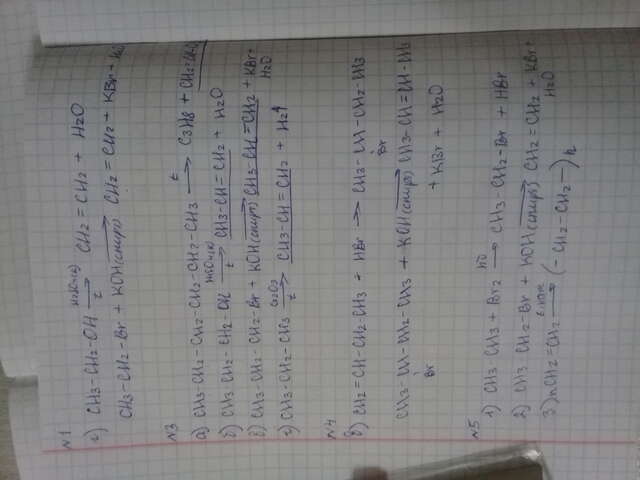 №1
г) CH3-CH2-OH H2SO4(к) t → CH2=CH2 + H2O
CH3-CH2-Br + KOH(спирт) → CH2=CH2 + KBr + H2O
№3
а) CH3-CH2-CH2-CH2-CH2-CH3 t → C3H8 + CH2=CH-CH3
б) CH3-CH2-CH2-OH H2SO4(к) t → CH3-CH=CH2 + H2O
в) CH3-CH2-CH2-Br + KOH(спирт) → CH3-CH=CH2 + KBr +
H2O
г) CH3-CH2-CH3 Cr2O3 t → CH3-CH=CH2 + H2↑
№4
в) CH2=CH-CH2-CH3 + HBr → CH3-CH-CH2-CH3
Br
CH3-CH-CH2-CH3 + KOH(спирт) → CH3-CH=CH-CH3
Br
+ KBr + H2O
№5
1) CH3-CH3 + Br2 hν → CH3-CH2-Br + HBr
2) CH3 CH2-Br + KOH(спирт) → CH2=CH2 + KBr +
H2O
3) nCH2=CH2 t, кат → (-CH2-CH2-)n